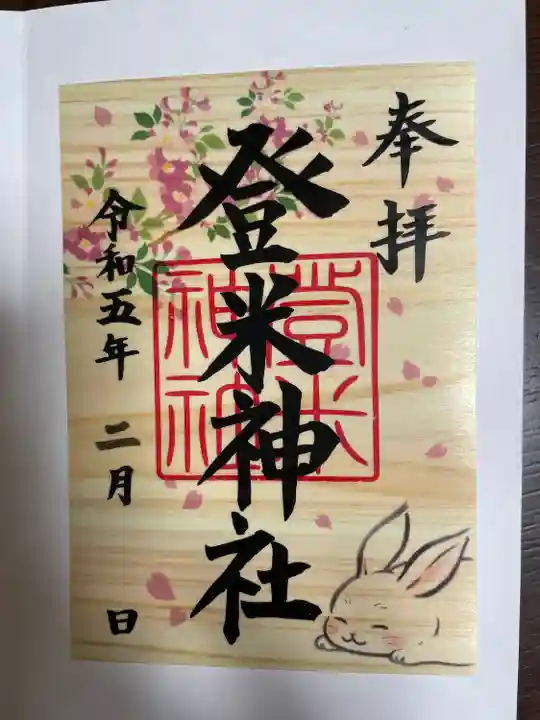 奉拝
登米神社
登米
神社
令和五年 二月 日